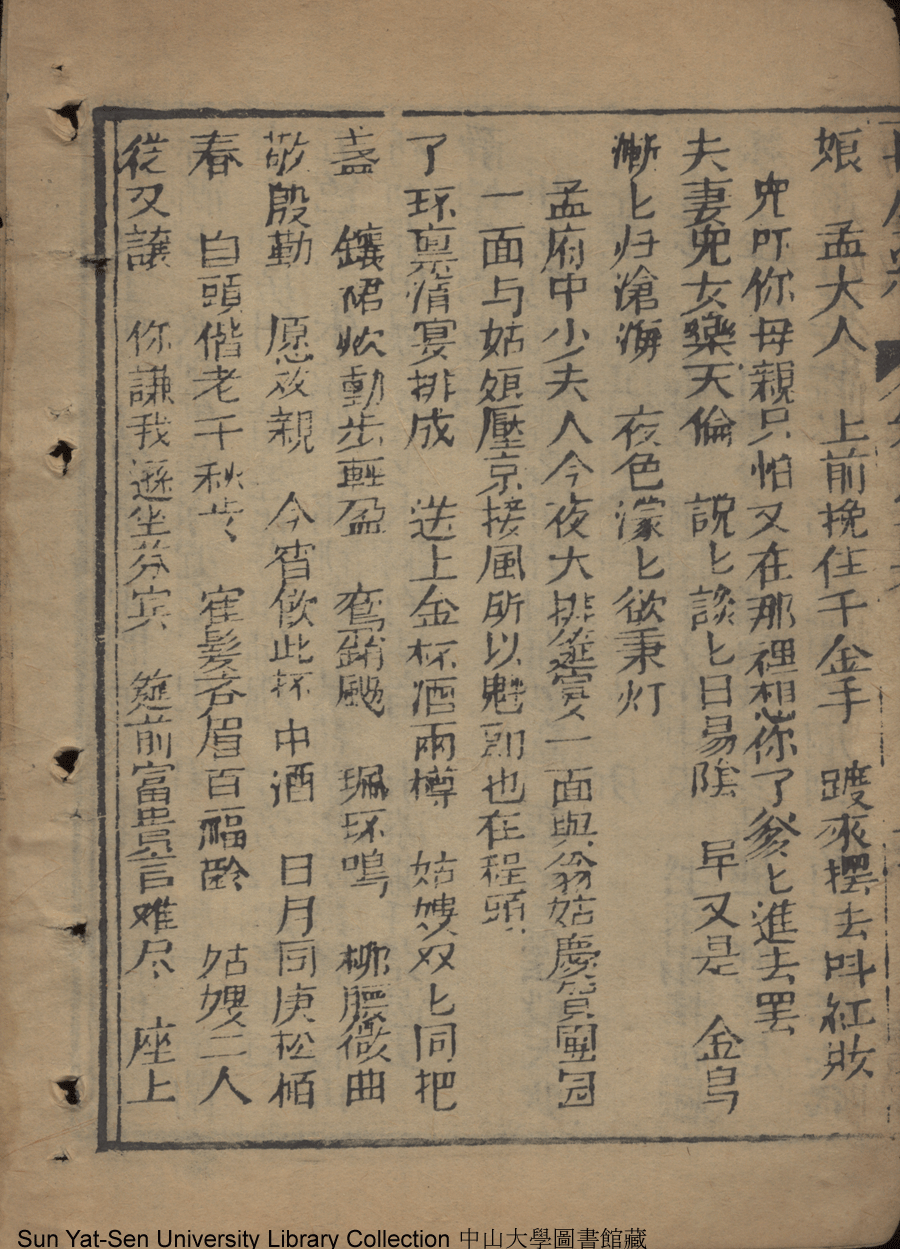 娘　孟大人　上前挽住千金手　踱來摆去呌紅妝
児吓你母親只怕又在那裡想你了爹匕進去罢
夫妻児女樂天倫　説匕談匕日易陰　早又是　金烏
漸匕归滄海　夜色濛匕欲秉灯
孟府中少夫人今夜大排筵宴一面與翁姑慶賀團圓
一面与姑娘壓京接風所以魁郎也在程頭
了环禀清宴排成　送上金杯酒兩樽　姑嫂双匕同把
盏　鑲裙炊動步輕盈　鸾綃颺　珮环鳴　柳腰微曲
敬殷勤　愿双親　今宵飲此杯中酒　日月同庚松栢
春　白頭偕老千秋歩　寉髮齐眉百福龄　姑嫂二人
從又譲　你謙我遜坐芬宾　筵前富貴言难尽　座上
Sun Yat-Sen University Library Collection 中山大學圖書館藏